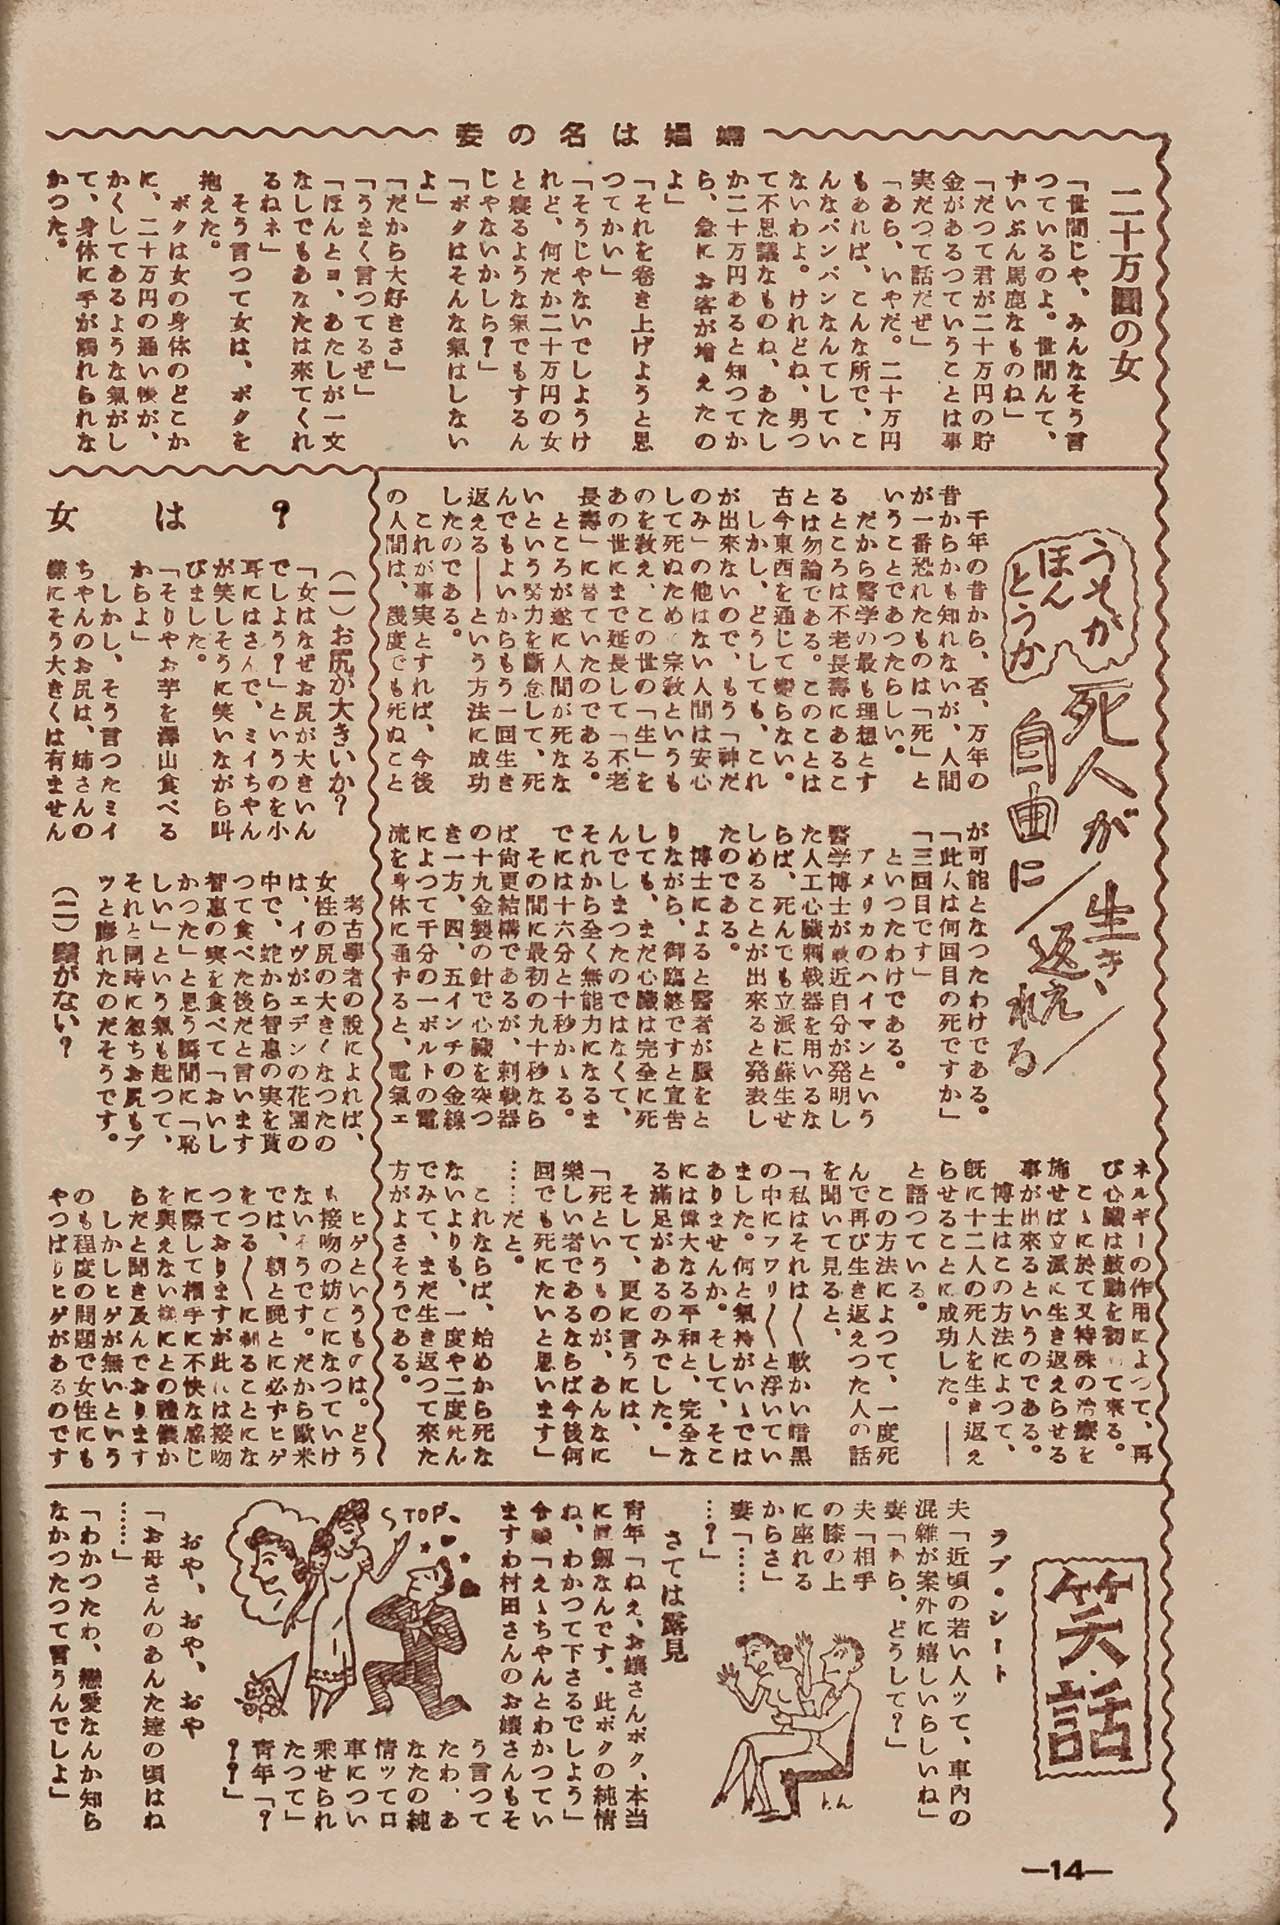 妾の名は娼婦
二十万圓の女
「世間じや、みんなそう言
つているのよ。世間んて、
ずいぶん馬鹿なものね」
「だつて君が二十万円の貯
金があるつていうことは事
実だつて話だぜ」
「あら、いやだ。二十万円
もあれば、こんな所で、こ
んなパンパンなんてしてい
ないわよ。けれどね、男つ
て不思議なものね、あたし
か二十万円あると知つてか
ら、急にお客が増えたの
よ」
「それを巻き上げようと思
つてかい」
「そうじやないでしようけ
れど、何だか二十万円の女
と寝るような氣でもするん
じやないかしら？」
「ボクはそんな氣はしない
よ」
「だから大好きさ」
「うまく言つてるぜ」
「ほんとヨ、あたしが一文
なしでもあなたは来てくれ
るねネ」
そう言つて女は、ボクを
抱えた。
ボクは女の身体のどこか
に、二十万円の通い帳が、
かくしてあるような氣がし
て、身体に手が觸れられな
かつた。
うそか
ほん
とうか
死人が生き返えれる
自由に
千年の昔から、否、万年の
昔からかも知れないが、人間
が一番恐れたものは「死」と
いうことであつたらしい。
だから醫学の最も理想とす
るところは不老長壽にあるこ
とは勿論である。このことは
古今東西を通じて變らない。
しかし、どうしても、これ
が出来ないので、もう「神だ
のみ」の他はない人間は安心
して死ぬために宗教というも
のを教え、この世の「生」を
あの世にまで延長して「不老
長壽」に替ていたのである。
ところが遂に人間が死なな
いという努力を斷念して、死
んでもよいからもう一回生き
返える――という方法に成功
したのである。
これが事実とすれば、今後
の人間は、幾度でも死ぬこと
が可能となつたわけである。
「此人は何回目の死ですか」
「三回目です」
といつたわけである。
アメリカのハイマンという
醫学博士が最近自分が発明し
た人工心臓刺戟器を用いるな
らば、死んでも立派に蘇生せ
しめることが出来ると発表し
たのである。
博士によると醫者が脈をと
りながら、御臨終ですと宣告
しても、まだ心臓は完全に死
んでしまつたのではなくて、
それから全く無能力になるま
でには十六分と十秒かゝる。
その間に最初の九十秒なら
ば尚更結構であるが、刺戟器
の十九金製の針で心臓を突つ
き一方、四、五インチの金線
によつて千分の一ボルトの電
流を身体に通ずると、電氣エ
ネルギーの作用によつて、再
び心臓は鼓動を初めて来る。
こゝに於て又特殊の治療を
施せば立派に生き返えらせる
事が出来るというのである。
博士はこの方法によつて、
既に十二人の死人を生き返え
らせることに成功した。――
と語つている。
この方法によつて、一度死
んで再び生き返えつた人の話
を聞いて見ると、
「私はそれは〳〵軟かい暗黒
の中にフワリ〳〵と浮いてい
ました。何と氣持がいゝでは
ありませんか。そして、そこ
には偉大なる平和と、完全な
る滿足があるのみでした。」
そして、更に言うには、
「死というものが、あんなに
樂しい者であるならば今後何
回でも死にたいと思います」
……だと。
これならば、始めから死な
ないよりも、一度や二度死ん
でみて、まだ生き返つて来た
方がよさそうである。
女は？
（一）お尻が大きいか？
「女はなぜお尻が大きいん
でしよう？」というのを小
耳にはさんで、ミイちやん
が笑しそうに笑いながら叫
びました。
「そりやお芋を澤山食べる
からよ」
しかし、そう言つたミイ
ちやんのお尻は、姉さんの
樣にそう大きくは有ません
考古學者の說によれば、
女性の尻の大きくなつたの
は、イヴがエデンの花園の
中で、蛇から智惠の実を貰
つて食べた後だと言います
智惠の実を食べて「おいし
かつた」と思う瞬間に「恥
しい」という氣も起つて、
それと同時に忽ちお尻もプ
ツと膨れたのだそうです。
（二）鬚がない？
ヒゲというものは。どう
も接吻の妨げになつていけ
ないそうです。だから歐米
では、朝と晩とに必ずヒゲ
をつる〳〵に剃ることにな
つておりますが此れは接吻
に際して相手に不快な感じ
を與えない樣にとの禮儀か
らだと聞き及んでおります
しかしヒゲが無いという
のも程度の問題で女性にも
やつぱりヒゲがあるのです
笑・話
ラブ・シート
夫「近頃の若い人ッて、車內の
混雜が案外に嬉しいらしいね」
妻「あら、どうして？」
夫「相手
の膝の上
に座れる
からさ」
妻「……
…？」
とん
さては露見
青年「ねえ、お孃さんボク、本当
に眞劔なんです。此ボクの純情
ね、わかつて下さるでしよう」
令孃「えゝちやんとわかつてい
ますわ村田さんのお孃さんもそ
う言つて
たわ、あ
なたの純
情ッて口
車につい
乘せられ
たつて」
青年「？
？？」
STOP、
おや、おや、おや
「お母さんのあんた達の頃はね
……」
「わかつたわ、戀愛なんか知ら
なかつたつて言うんでしよ」
—14—